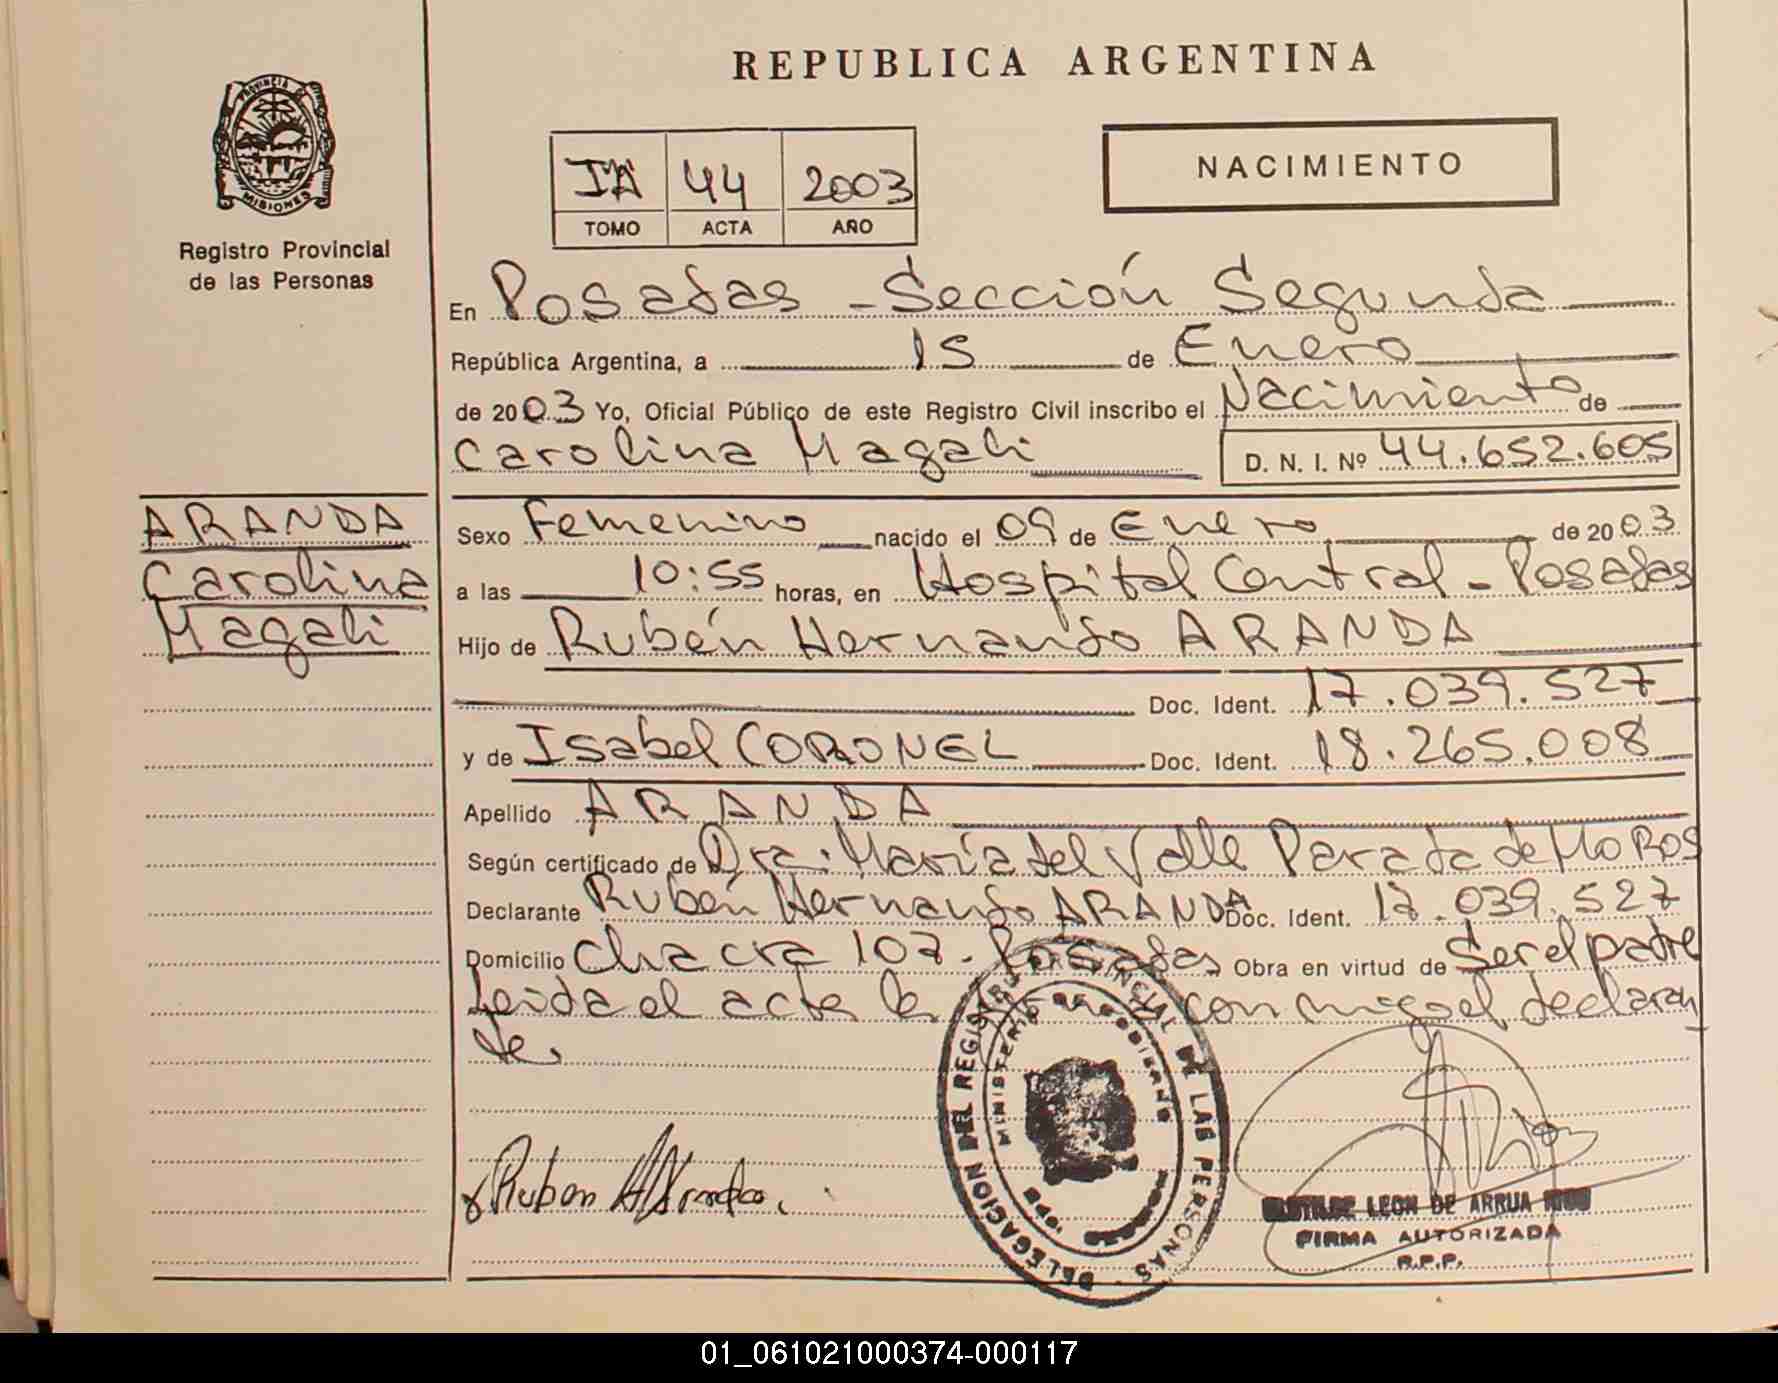 PROVINCIA DE
MISIONES
Registro Provincial
de las Personas
REPUBLICA ARGENTINA
IA 44 2003
TOMO ACTA AÑO
NACIMIENTO
En Posadas - Sección Segunda
República Argentina, a 15 de Enero
de 2003 Yo, Oficial Público de este Registro Civil inscribo el Nacimiento de
Carolina Magali D. N. I. Nº 44.652.605
ARANDA
Carolina
Magali
Sexo Femenino nacido el 09 de Enero de 2003
a las 10:55 horas, en Hospital Central - Posadas
Hijo de Rubén Hernando ARANDA
Doc. Ident. 17.039.527
y de Isabel CORONEL Doc. Ident. 18.265.008
Apellido ARANDA
Según certificado de Dra. María del Valle Parada de Moros
Declarante Rubén Hernando ARANDA Doc. Ident. 17.039.527
Domicilio Chacra 107. Posadas Obra en virtud de Ser el padre
Leida el acta la conmigo el declaran
te.
Ruben H Aranda.
DELEGACION DEL REGISTRO PROVINCIAL DE LAS PERSONAS
MINISTERIO DE GOBIERNO
LEON DE ARRUA
FIRMA AUTORIZADA
R.P.P.
01_061021000374-000117